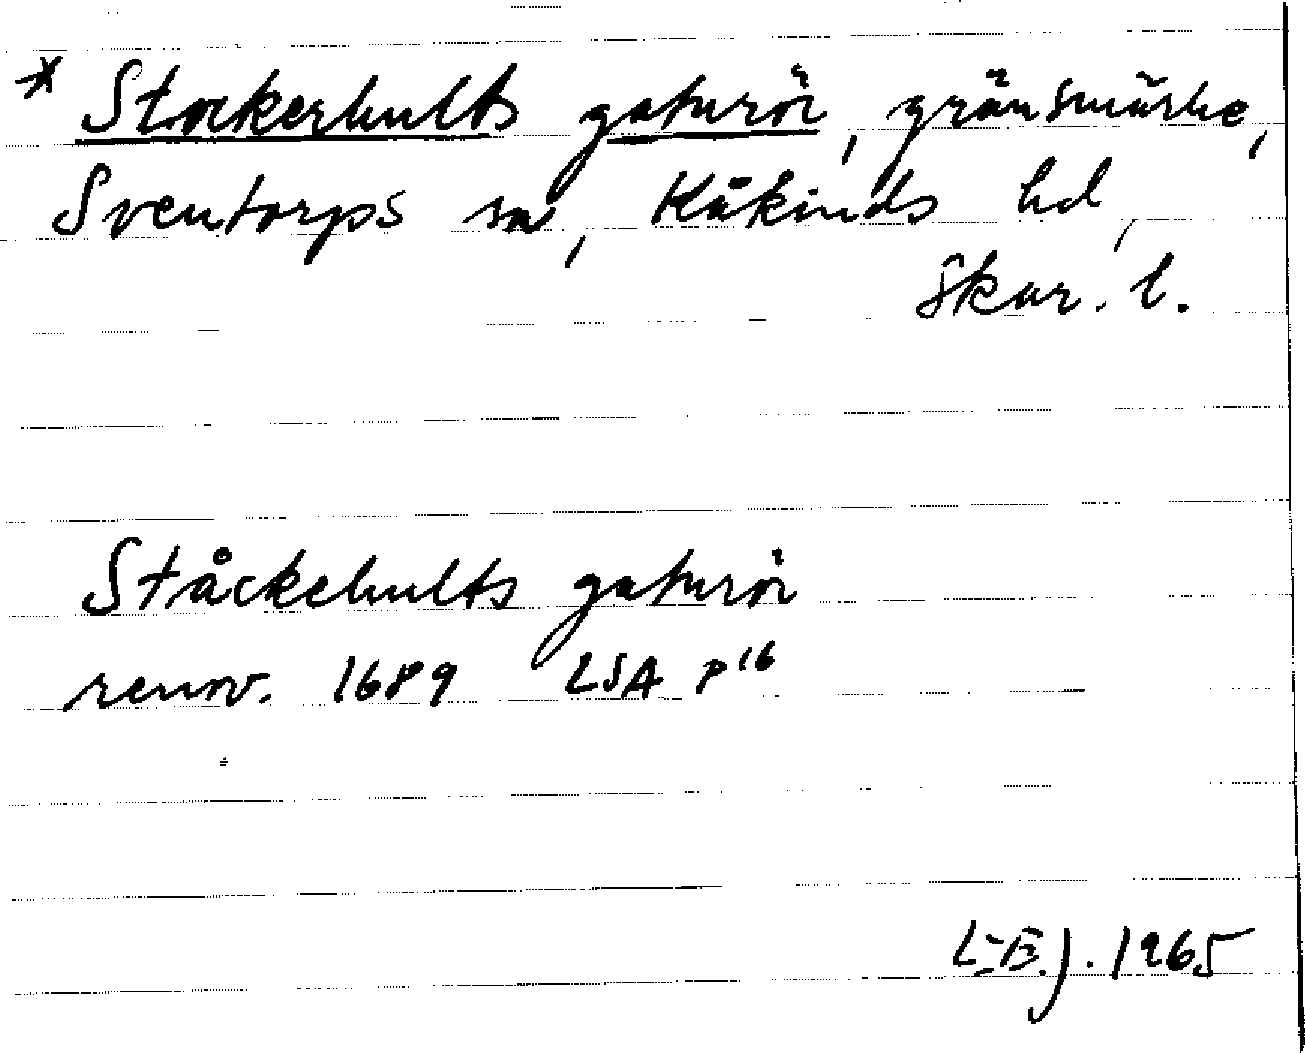 * Stockerhults gaturör, gränsmärke,
Sventorps sn, Kåkinds hd,
Skar. l.
Ståckehults gaturör
renov. 1689 LSA P 16
L-E.J. 1965